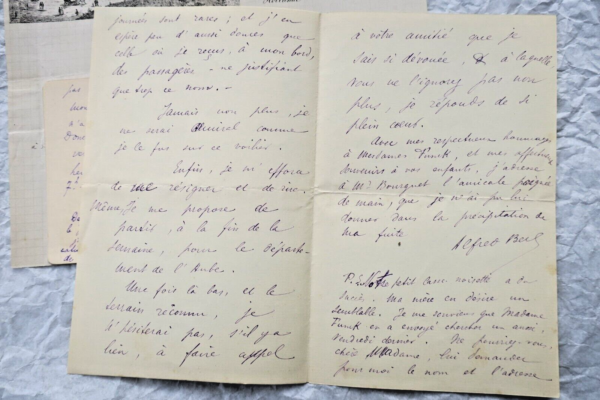 journées sont rares ; et j'en
espère peu d'aussi douces que
celle où je reçus, à mon bord,
des passagères - ne justifiant
que trop ce nom. -
Jamais non plus, je
ne serai Amiral comme
je le fus sur ce voilier.
Enfin, je m'efforce
de me résigner et de rire.
Même je me propose de
partir, à la fin de la
semaine, pour le départe-
ment de l'Aube.
Une fois là-bas, et le
terrain reconnu, je
n'hésiterai pas, s'il y a
lieu, à faire appel
à votre amitié que je
sais si dévouée, & à laquelle
vous ne l'ignorez pas non
plus, je réponds de si
plein cœur.
Avec mes respectueux hommages
à Madame Funck, et mes affectueux
souvenirs à vos enfants, j'adresse
à Mr Bourguet l'amicale poignée
de main, que je n'ai pu lui
donner dans la précipitation de
ma fuite.
Alfred
P.S. Notre petit casse-noisette a du
succès. Ma mère en désire un
semblable. Je me souviens que Madame
Funck en a envoyé chercher un aussi,
vendredi dernier. Ne pourriez-vous,
chère Madame, lui demander
pour moi le nom et l'adresse